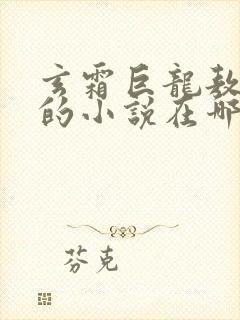 玄霜巨龍敖
的小說在哪
芬克